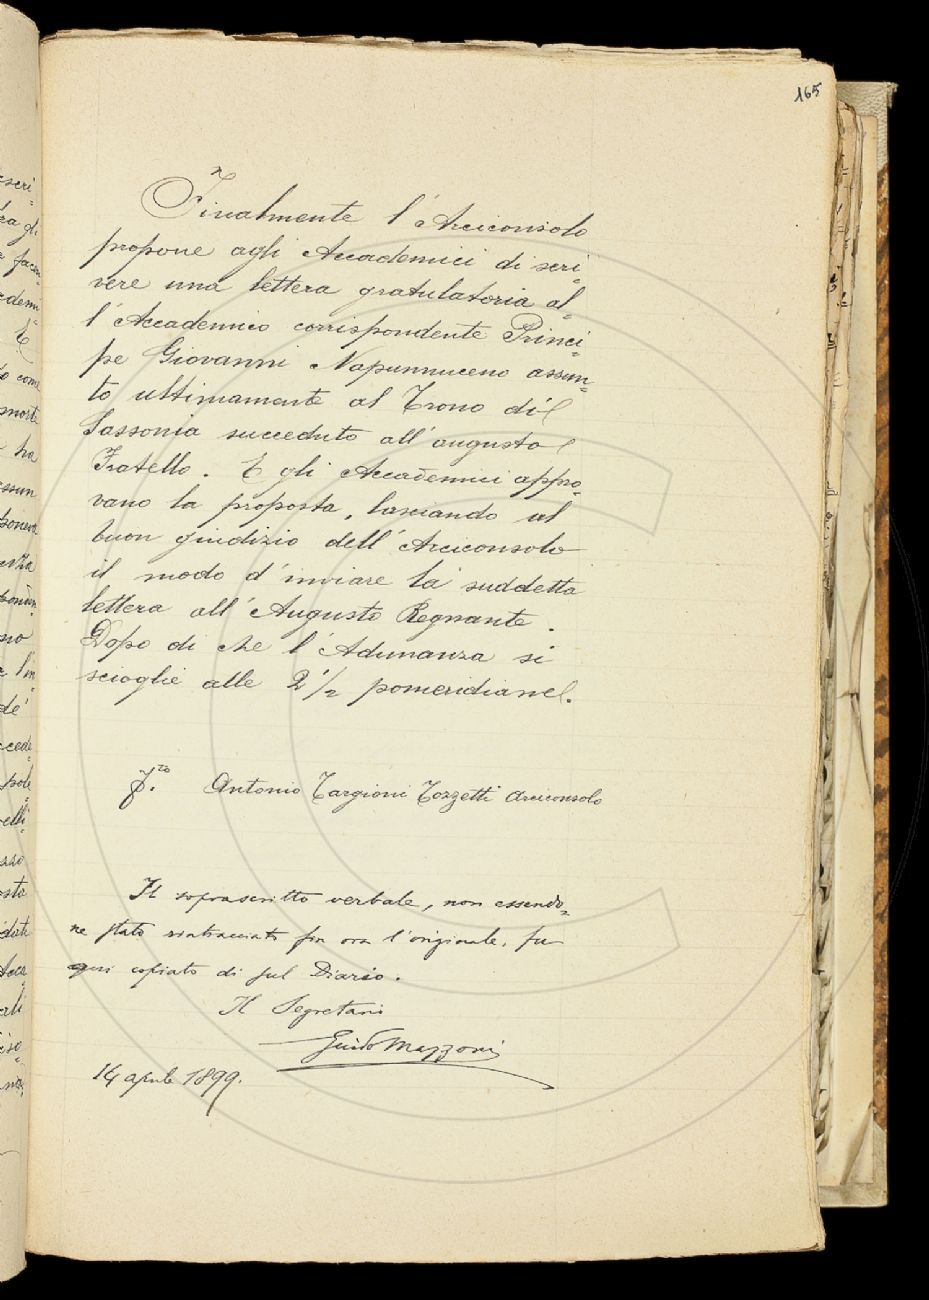 165
Finalmente l'Arciconsolo
propone agli Accademici di scri=
vere una lettera gratulatoria al=
l'Accademico corrispondente Princi=
pe Giovanni Nepumuceno assun=
to ultimamente al Trono di
Sassonia succeduto all'augusto
Fratello. E gli Accademici appro=
vano la proposta, lasciando al
buon giudizio dell'Arciconsolo
il modo d'inviare la suddetta
lettera all'Augusto Regnante.
Dopo di che l'Adunanza si
scioglie alle 2 1/2 pomeridiane.
F.to Antonio Targioni Tozzetti Arciconsolo
Il soprascritto verbale, non essendo=
ne stato rintracciato fin ora l'originale, fu
qui copiato di sul Diario.
Il Segretario
Guido Mazzoni
14 aprile 1899.